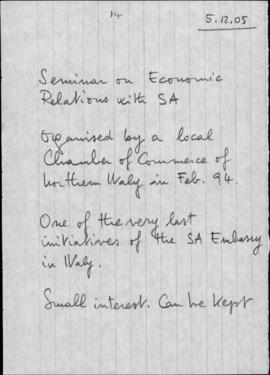 14
5.12.05
Seminar on Economic
Relations with SA
organised by a local
Chamber of Commerce of
northern Italy in Feb. 94.
One of the very last
initiatives of the SA Embassy
in Italy.
Small interest. Can be kept